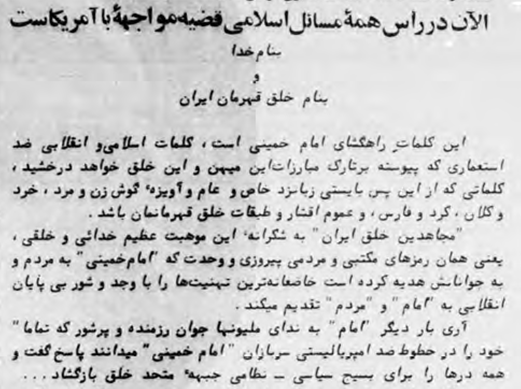 الآن در راس همهٔ مسائل اسلامی قضیه مواجههٔ با آمریکاست
بنام خدا
و
بنام خلق قهرمان ایران
این کلمات راهگشای امام خمینی است، کلمات اسلامی و انقلابی ضد
استعماری که پیوسته برتارک مبارزات این میهن و این خلق خواهد درخشید،
کلماتی که از این پس بایستی زبانزد خاص و عام و آویزهٔ گوش زن و مرد، خرد
و کلان، کرد و فارس، و عموم اقشار و طبقات خلق قهرمانمان باشد.
"مجاهدین خلق ایران" به شکرانهٔ این موهبت عظیم خدائی و خلقی،
یعنی همان رمزهای مکتبی و مردمی پیروزی و وحدت که "امام خمینی" به مردم و
به جوانانش هدیه کرده است خاضعانه‌ترین تهنیت‌ها را با وجد و شور بی پایان
انقلابی به "امام" و "مردم" تقدیم میکند.
آری بار دیگر "امام" به ندای ملیونها جوان رزمنده و پرشور که تماما"
خود را در خطوط ضد امپریالیستی سربازان "امام خمینی" میدانند پاسخ گفت و
همه درها را برای بسیج سیاسی ـ نظامی جبههٔ متحد خلق بازگشاد...